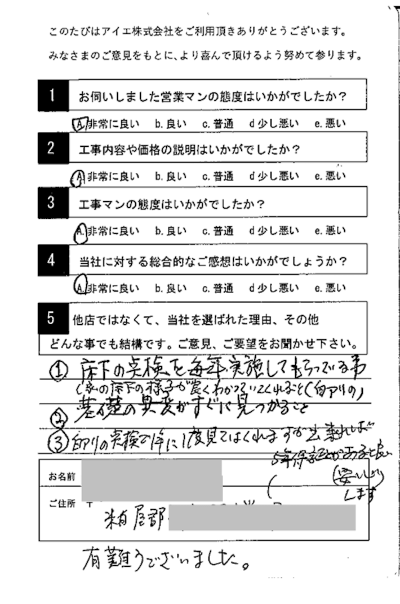 このたびはアイエ株式会社をご利用頂きありがとうございます。
みなさまのご意見をもとに、より喜んで頂けるよう努めて参ります。
1 お伺いしました営業マンの態度はいかがでしたか？
A.非常に良い b.良い c.普通 d少し悪い e.悪い
2 工事内容や価格の説明はいかがでしたか？
A.非常に良い b.良い c.普通 d少し悪い e.悪い
3 工事マンの態度はいかがでしたか？
A.非常に良い b.良い c.普通 d少し悪い e.悪い
4 当社に対する総合的なご感想はいかがでしょうか？
A.非常に良い b.良い c.普通 d少し悪い e.悪い
5 他店ではなくて、当社を選ばれた理由、その他
どんな事でも結構です。ご意見、ご要望をお聞かせ下さい。
① 床下の点検を毎年実施してもらっている事
(家の床下の様子が良くわかっていてくれること(白アリの)
② 基礎の異変がすぐに見つかること
③ 白アリの点検で1年に1度見てはくれますが出来れば
5年保証があると良い
します
お名前
ご住所 〒
粕屋郡
有難うございました。